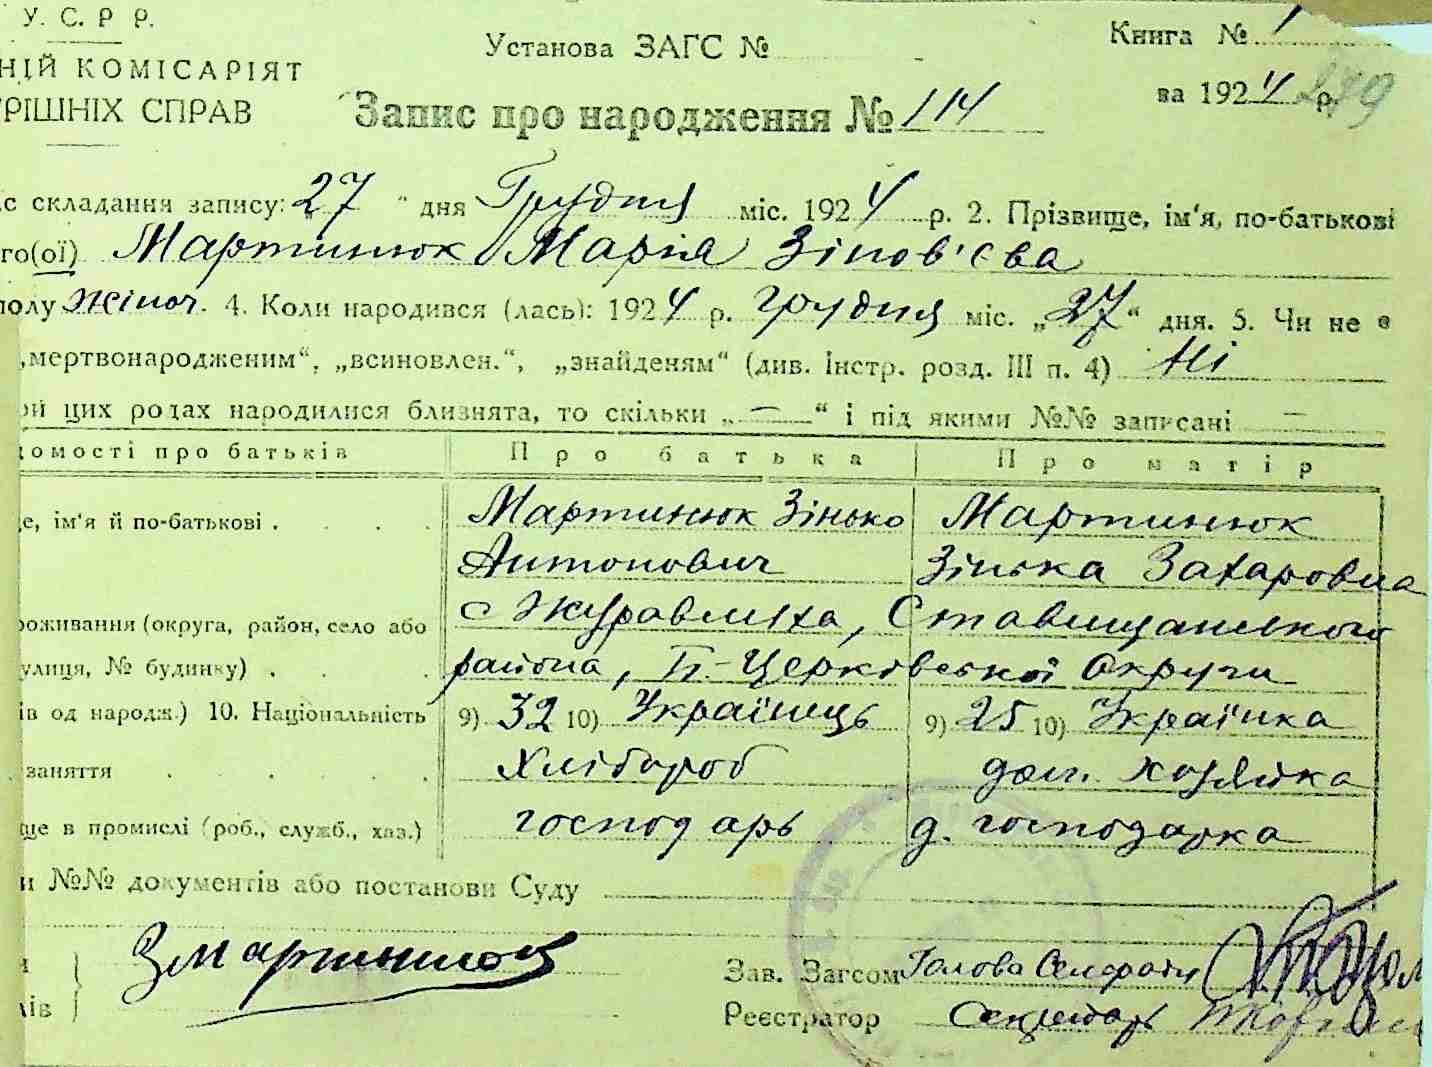 У. С. Р Р.
Установа ЗАГС №
Книга № 1
НІЙ КОМІСАРІЯТ
РІШНІХ СПРАВ
за 1924 р. 279
Запис про народження № 114
с складання запису: 27 " дня Грудня міс. 1924 р. 2. Прізвище, ім'я, по-батькові
го(ої) Мартинюк Марія Зінов'єва
полу жіноч. 4. Коли народився (лась): 1924 р. грудня міс. „27" дня. 5. Чи не є
„мертвонародженим", „всиновлен.", „знайденям" (див. Інстр. розд. III п. 4) Ні
ри цих родах народилися близнята, то скільки „—" і під якими №№ записані —
домості про батьків Про батька Про матір
е, ім'я й по-батькові . . . . Мартинюк Зінько Мартинюк
Антонович Зінька Захаровна
с Журавлиха, Ставищанського
роживання (округа, район, село або
улиця, № будинку) . . . района, Б-Церківської Округи
ів од народж.) 10. Національність 9) 32 10) Українець 9) 25 10) Українка
заняття . . . . . Хлібороб дом. хозяйка
ще в промислі (роб., служб., хаз.) господарь д. господарка
и №№ документів або постанови Суду
ЗМартинюк
Зав. Загсом Голова Сельради
ів
Реєстратор Секретарь